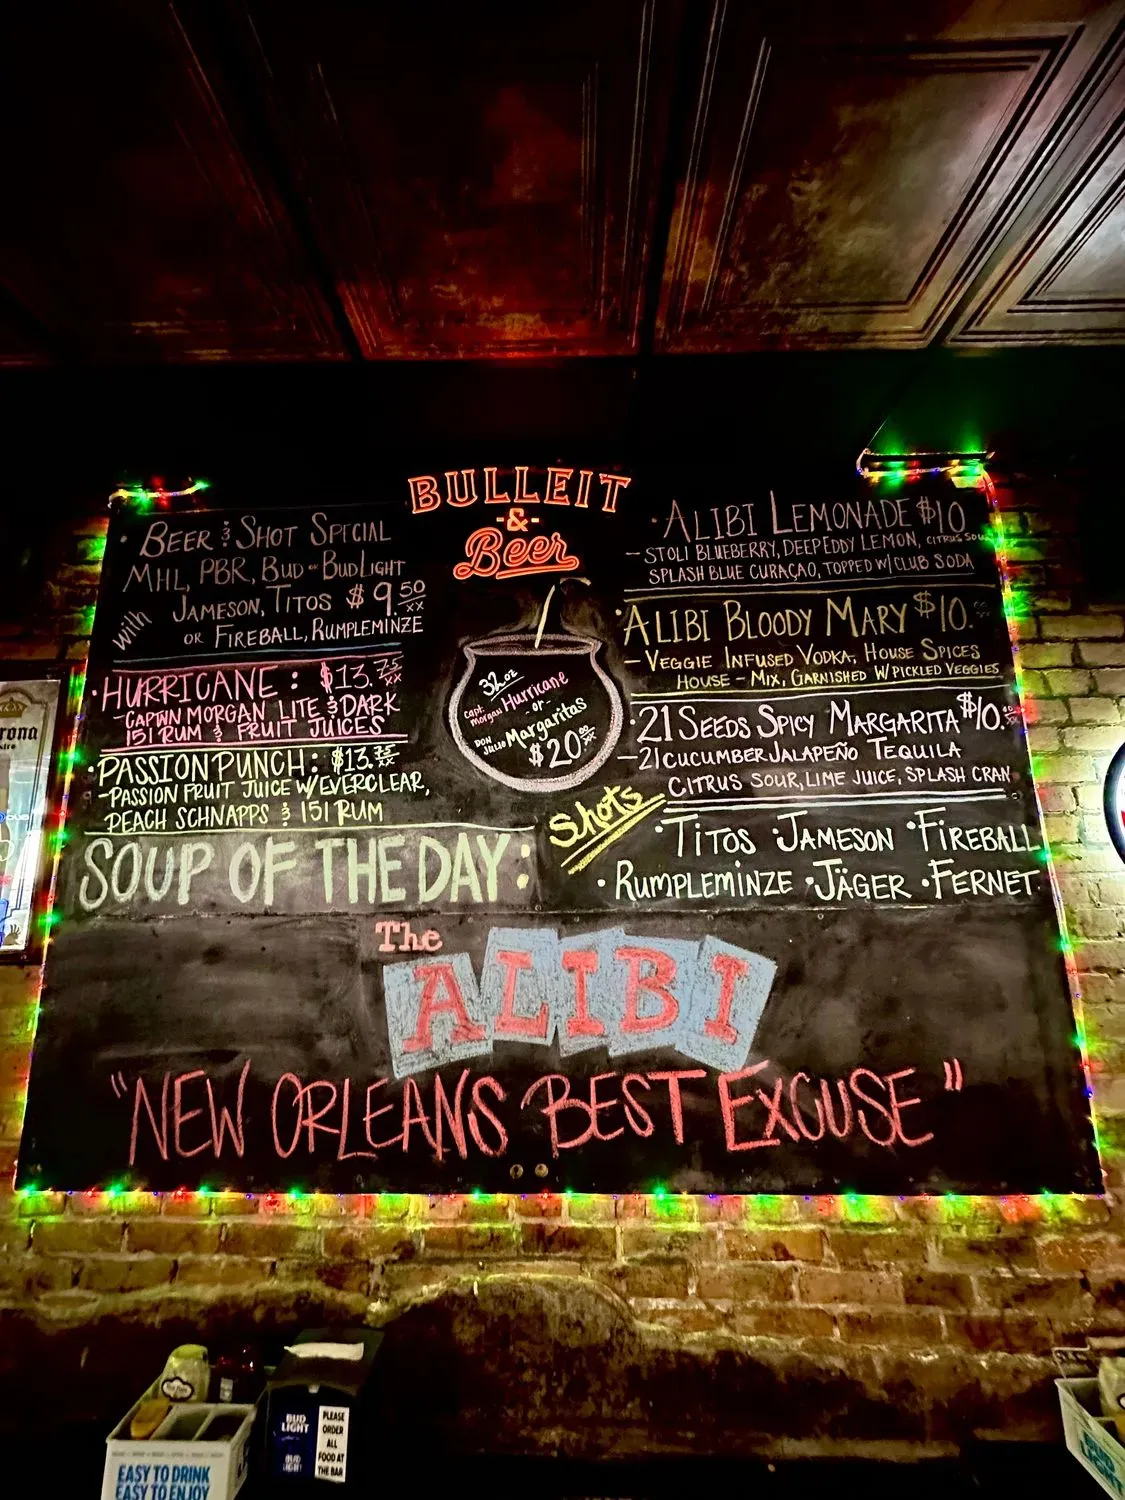 BULLEIT
-&-
Beer
• BEER & SHOT SPECIAL
MHL, PBR, BUD or BUDLIGHT
with JAMESON, TITOS $9.50
OR FIREBALL, RUMPLEMINZE
• HURRICANE: $13.75
- CAPTAIN MORGAN LITE & DARK
151 RUM & FRUIT JUICES
• PASSION PUNCH: $13.75
- PASSION FRUIT JUICE W/EVERCLEAR,
PEACH SCHNAPPS & 151 RUM
SOUP OF THE DAY:
32oz
Capt. Morgan Hurricane
- or -
DON Julio Margaritas
$20
• ALIBI LEMONADE $10
- STOLI BLUEBERRY, DEEP EDDY LEMON, CITRUS SOUR
SPLASH BLUE CURAÇAO, TOPPED W/CLUB SODA
• ALIBI BLOODY MARY $10.
- VEGGIE INFUSED VODKA, HOUSE SPICES
HOUSE-MIX, GARNISHED W/PICKLED VEGGIES
• 21 SEEDS SPICY MARGARITA $10.
- 21 CUCUMBER JALAPEÑO TEQUILA
CITRUS SOUR, LIME JUICE, SPLASH CRAN
Shots
• TITOS • JAMESON • FIREBALL
• RUMPLEMINZE • JÄGER • FERNET
The
ALIBI
"NEW ORLEANS BEST EXCUSE"
rona
BUD
LIGHT
PLEASE
ORDER
ALL
FOOD AT
THE BAR
EASY TO DRINK
EASY TO ENJOY